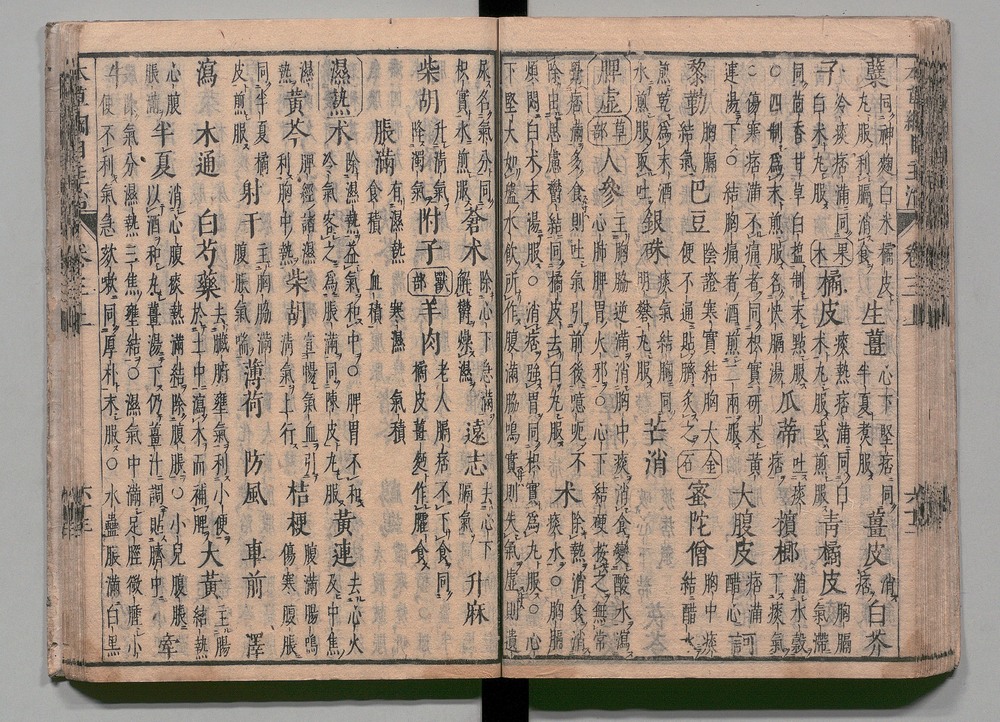 蘗 同神麴白米橘皮 丸服利膈消食 生薑 心下堅痞同 半夏煮服 薑皮 消痞 白芥
子 冷痰痞滿同 白朮丸服 果 木 橘皮 痰熱痞滿同白 朮丸服或煎服 青橘皮 胸膈 氣滯
同茴香甘草白盬制末點服 四制爲末煎服名快膈湯 瓜蒂 吐痰 痞 檳榔 消水穀 下痰氣
傷寒痞滿不痛者同枳實研末黃 連湯下 結胸痛者酒煎二兩服 大腹皮 痞滿 醋心 訶
黎勒 胸膈 結氣 巴豆 陰證寒實結胸大 便不通貼臍灸之 金 石 蜜陀僧 胸中痰 結醋
煎乾爲末酒 水煎服取吐 銀硃 痰氣結胸同 明礬丸服 芒消
脾虛 草 部 人參 主胸脇逆滿消胸中痰消食變酸水瀉 心肺脾胃火邪 心下結硬按之無常
覺痞滿多食則吐氣引前後噫呃不 除出思慮鬱結同橘皮去白丸服 朮 除熱消食消 痰水 胸膈
煩悶白朮末湯服 消痞強胃同枳實爲丸服 心 下堅大如盤水飲所作腹滿脇鳴實則失氣虛則遺
尿名氣分同 枳實水煎服 蒼朮 除心下急滿 解鬱燥濕 遠志 去心下 膈氣 升麻
柴胡 升清氣 降濁氣 附子 獸 部 羊肉 老人膈痞不下食同 橘皮薑麪作臛食
脹滿 有濕熱 寒濕 氣積 食積 血積
濕熱 朮 除濕熱益氣和中 脾胃不和 冷氣客之爲脹滿同陳皮丸服 黃連 去心火 及中焦
濕熱 黃芩 脾經諸濕 利胸中熱 柴胡 宣暢氣血引 清氣上行 桔梗 腹滿腸鳴 傷寒腹脹
同半夏橘 皮煎服 射干 主胸脇滿 腹脹氣喘 薄荷 防風 車前 澤
瀉 木通 白芍藥 去臟腑壅氣利小便 於土中瀉木而補脾 大黃 主腸 結熱
心腹 脹滿 半夏 消心腹痰熱滿結除腹脹 小兒腹脹 以酒和丸薑湯下仍薑汁調貼臍中 牽
牛 除氣分濕熱三焦壅結 濕氣中滿足脛微腫小 便不利氣急欬嗽同厚朴末服 水蠱脹滿白黑